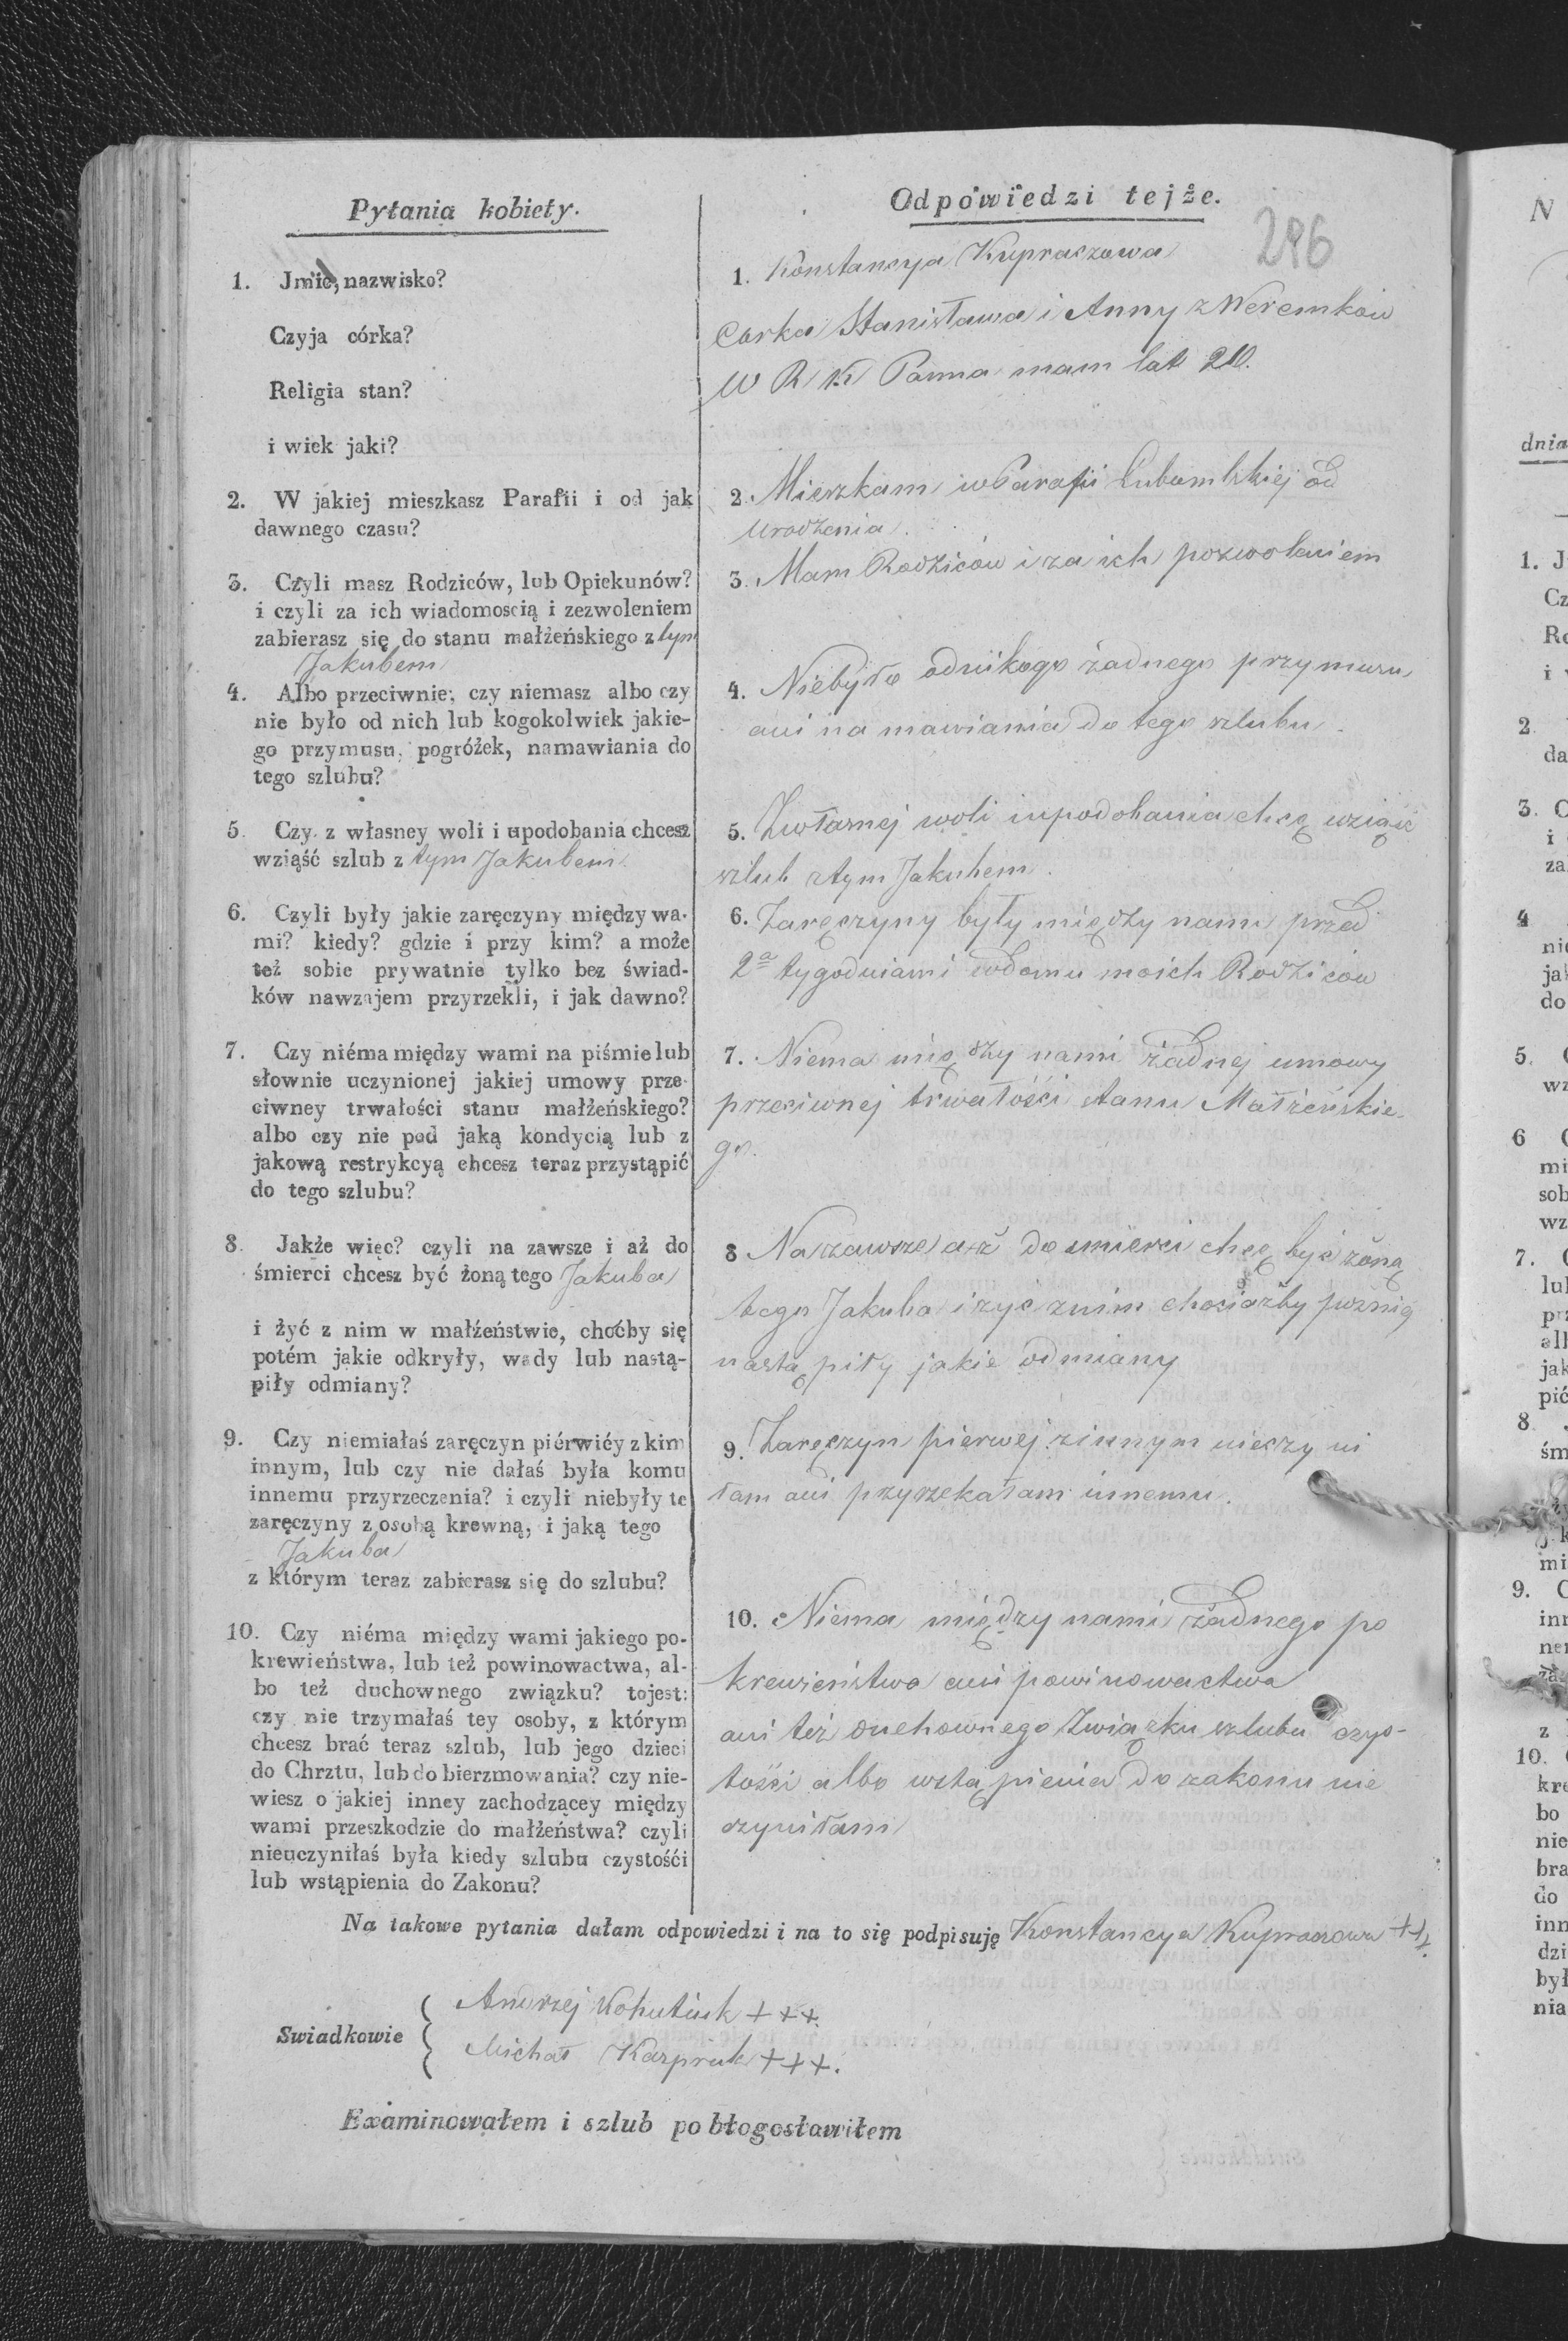 Pytania kobiety.
1. Jmie, nazwisko?
Czyja córka?
Religia stan?
i wiek jaki?
2. W jakiej mieszkasz Parafii i od jak
dawnego czasu?
3. Czyli masz Rodziców, lub Opiekunów?
i czyli za ich wiadomoscią i zezwoleniem
zabierasz się do stanu małżeńskiego z tym
Jakubem
4. Albo przeciwnie, czy niemasz albo czy
nie było od nich lub kogokolwiek jakie-
go przymusu, pogróżek, namawiania do
tego szlubu?
5. Czy z własney woli i upodobania chcesz
wziąść szlub z tym Jakubem
6. Czyli były jakie zaręczyny między wa-
mi? kiedy? gdzie i przy kim? a może
też sobie prywatnie tylko bez świad-
ków nawzajem przyrzekli, i jak dawno?
7. Czy niéma między wami na piśmie lub
słownie uczynionej jakiej umowy prze-
ciwney trwałości stanu małżeńskiego?
albo czy nie pod jaką kondycią lub z
jakową restrykcyą chcesz teraz przystąpić
do tego szlubu?
8. Jakże więc? czyli na zawsze i aż do
śmierci chcesz być żoną tego Jakuba
i żyć z nim w małżeństwie, choćby się
potém jakie odkryły, wady lub nastą-
piły odmiany?
9. Czy niemiałaś zaręczyn piérwiéy z kim
innym, lub czy nie dałaś była komu
innemu przyrzeczenia? i czyli niebyły te
zaręczyny z osobą krewną, i jaką tego
Jakuba
z którym teraz zabierasz się do szlubu?
10. Czy niéma między wami jakiego po-
krewieństwa, lub też powinowactwa, al-
bo też duchownego związku? tojest:
czy nie trzymałaś tey osoby, z którym
chcesz brać teraz szlub, lub jego dzieci
do Chrztu, lub do bierzmowania? czy nie-
wiesz o jakiej inney zachodzącey między
wami przeszkodzie do małżeństwa? czyli
nieuczyniłaś była kiedy szlubu czystośći
lub wstąpienia do Zakonu?
Odpowiedzi tejże.
296
1. Konstancya Kupraczowa
Corka Stanisława i Anny z Weremkow
W R K Panna mam lat
2. Mieszkam w Parafii Lubomlskiej od
urodzenia.
3. Mam Rodziców i za ich pozwoleniem
4. Niebyło odnikogo żadnego przymusu
ani na mawiania do tego szlubu.
5. Zwłasnej woli iupodobania chcę wziąść
szlub ztym Jakubem.
6. Zaręczyny były między nami przed
2a tygodniami wdomu moich Rodziców
7. Niema między nami żadnej umowy
przeciwnej trwałości stanu Małżeńskie
go.
8 Nazawsze aż do smierci chcę być żoną
tego Jakuba i żyć znim chociażby
nastąpiły jakie odmiany
9. Zaręczyn pierwej zinnym nieczy ni
łam ani przyrzekałam innemu.
10. Niema między nami żadnego po
krewieństwa ani powinowactwa
ani też duchownego Związku szlubu czys-
tości albo wstąpienia do zakonu nie
czyniłam
Na takowe pytania dałam odpowiedzi i na to się podpisuję Konstancya Kupraczowa +++.
Swiadkowie
Andrzej Kohutiuk +++.
Michał Karpiuk +++.
Examinowałem i szlub pobłogosławiłem
N
dnia
1. J
Cz
2.
da
3. C
i
za
4
nie
do
5.
wz
6
mi
sob
wz
7.
lub
jak
pić
8.
śm
mi
9. C
inn
z
10.
kre
bo
nie
bra
do
inn
dzi
był
nia